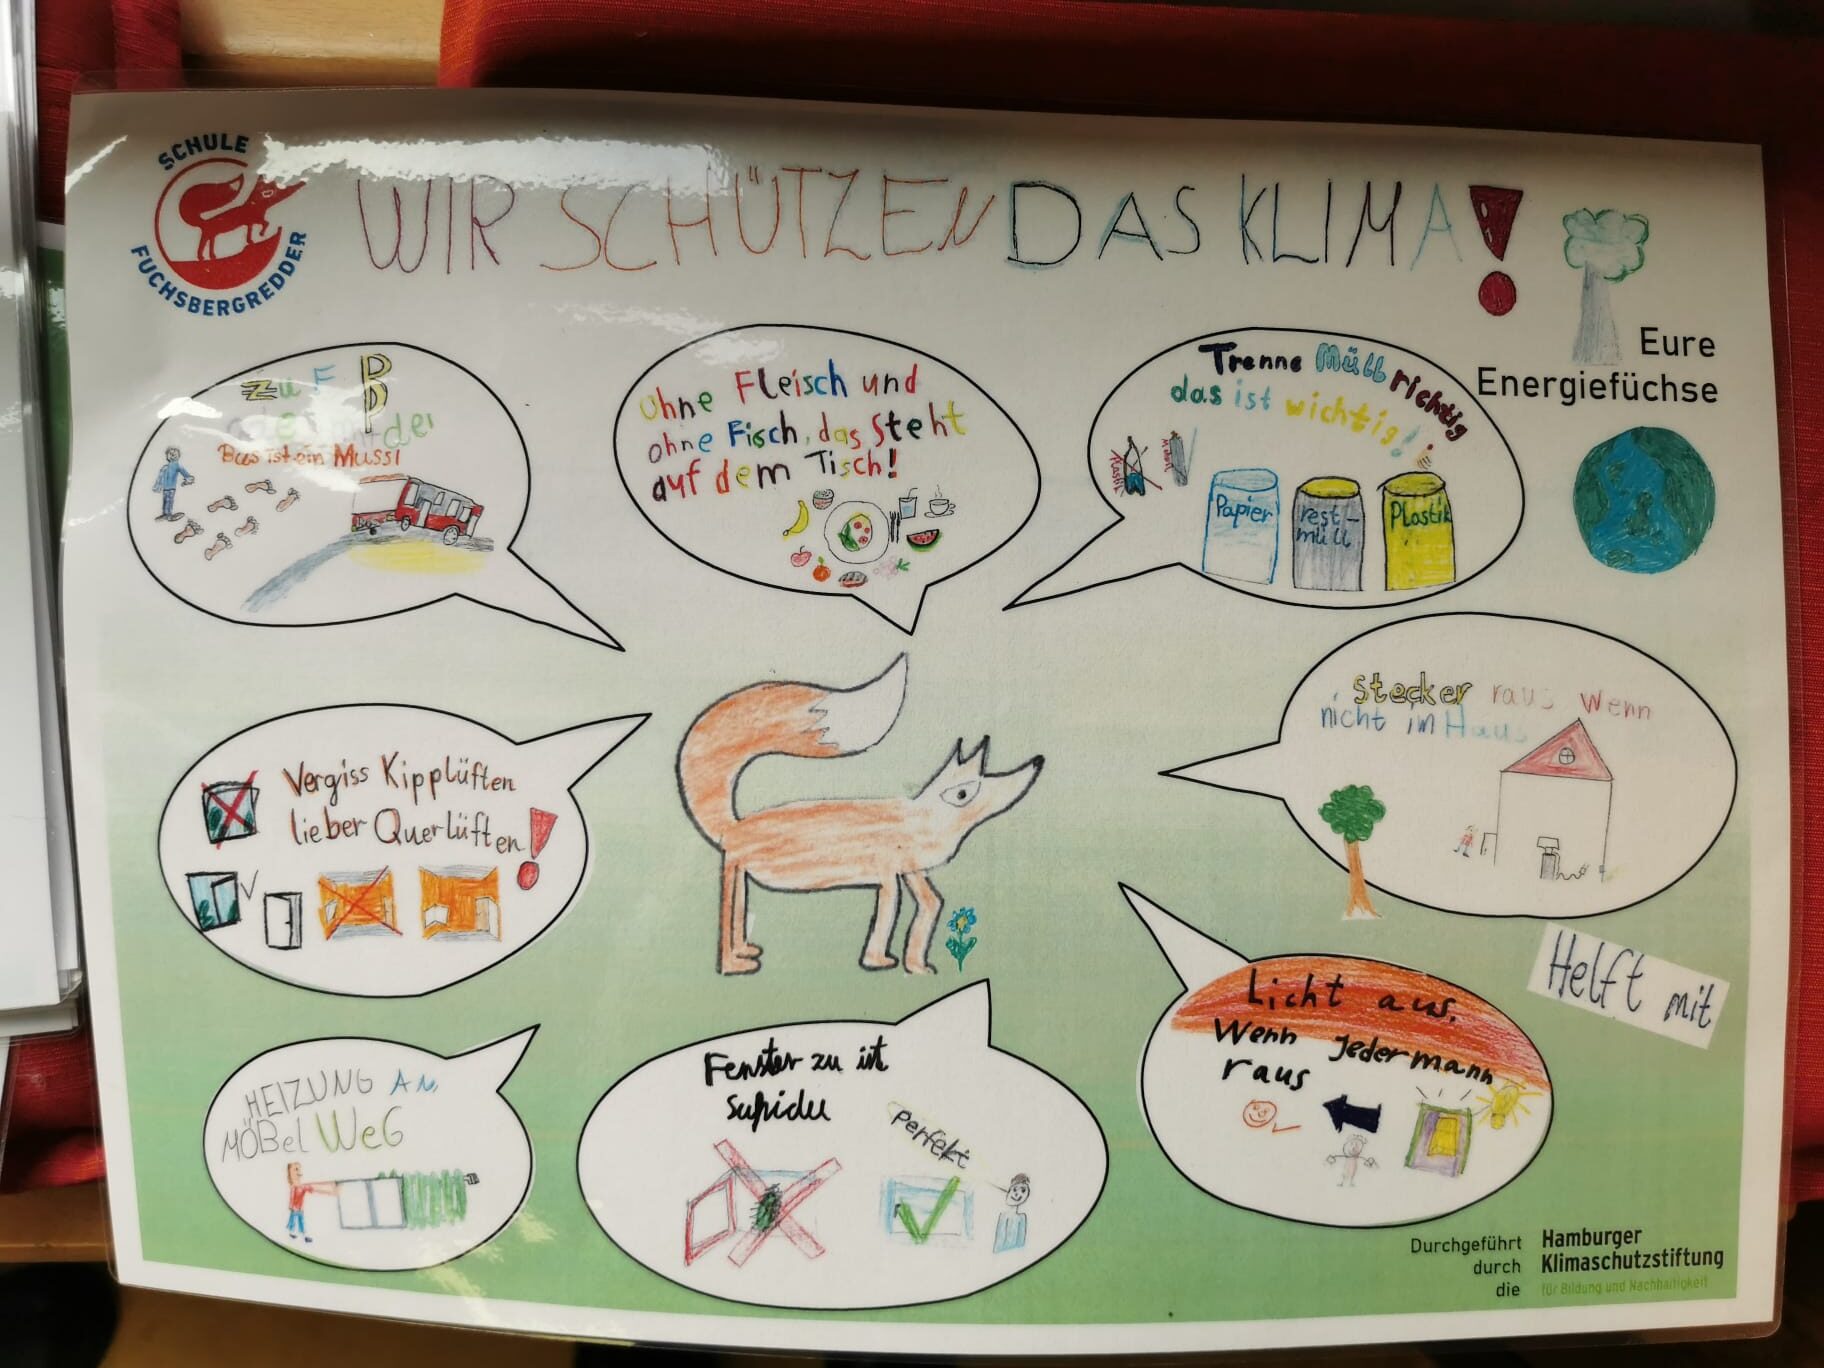 SCHULE
FUCHSBERGREDDER
WIR SCHÜTZEN DAS KLIMA!
Eure
Energiefüchse
zu Fß
oder mit der
Bus ist ein Muss!
Ohne Fleisch und
ohne Fisch, das Steht
auf dem Tisch!
Trenne Müll richtig
das ist wichtig!
Papier
rest-
müll
Plastik
Vergiss Kipplüften
lieber Querlüften!
Stecker raus wenn
nicht im Haus
Licht aus,
Wenn jedermann
raus
Helft mit
HEIZUNG AN,
MÖBel WeG
Fenster zu ist
perfekt
Durchgeführt
durch
die
Hamburger
Klimaschutzstiftung
für Bildung und Nachhaltigkeit